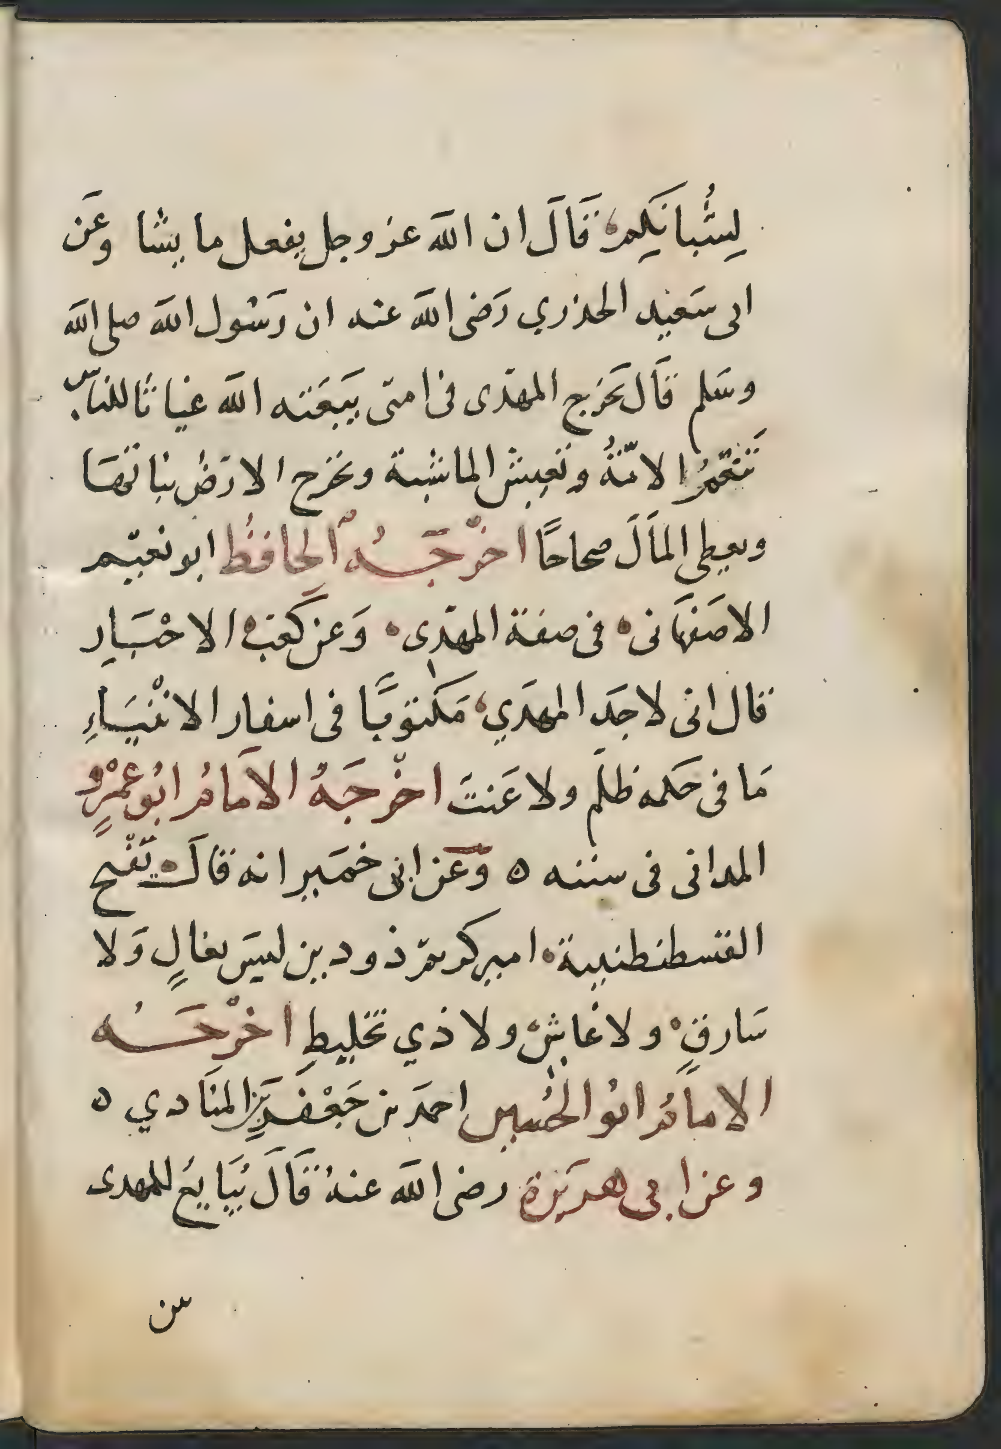 لِشُبانكم فَقَالَ ان الله عز وجل يفعل ما يشا وعَن
ابى سَعيد الخدري رَضى الله عنه ان رَسُول الله صلى الله
وسَلم قَال يَخرج المهدى فى امتى يَبعَثه الله غياثًا للناس
تَنْعَمُ الامّةُ وتعيش الماشية وتخرج الارَضُ نباتهَا
ويعطى المَالَ صحاحًا اخْرَجَهُ الحافظ ابو نعيم
الاصَفهَانى فى صفة المهدى وَعَن كعب الاحْبَار
قال انى لاجدَ المهدَي مَكتوبًا فى اسفار الانْبيَاءِ
مَا فى حكمه ظلم ولا عَنتَ اخْرجَهُ الاَمَامُ ابُو عَمْرٍو
المدانى فى سننه ٥ وَعَن ابى خمَير انه قالَ تَفْتح
القسطنطنيية امير كريم ذو دين ليسَ بغالٍ وَلا
سَارقٍ ولا غاشٍ ولا ذي تخليطِ اخْرجَهُ
الامامُ ابو الحُسين احمدَ بن جَعْفَر بن المنَادي ٥
وعن ابى هريَرة رضى الله عنهُ قَالَ يُبَايعَ للمهدى